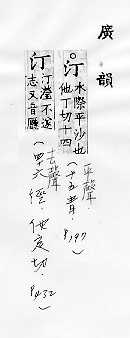 廣韻
汀水際平沙也
他丁切十四
平聲
(十五青)
P.197
汀汀瀅不遂
志又音廳
去聲
(四六徑 他定切)
P.432